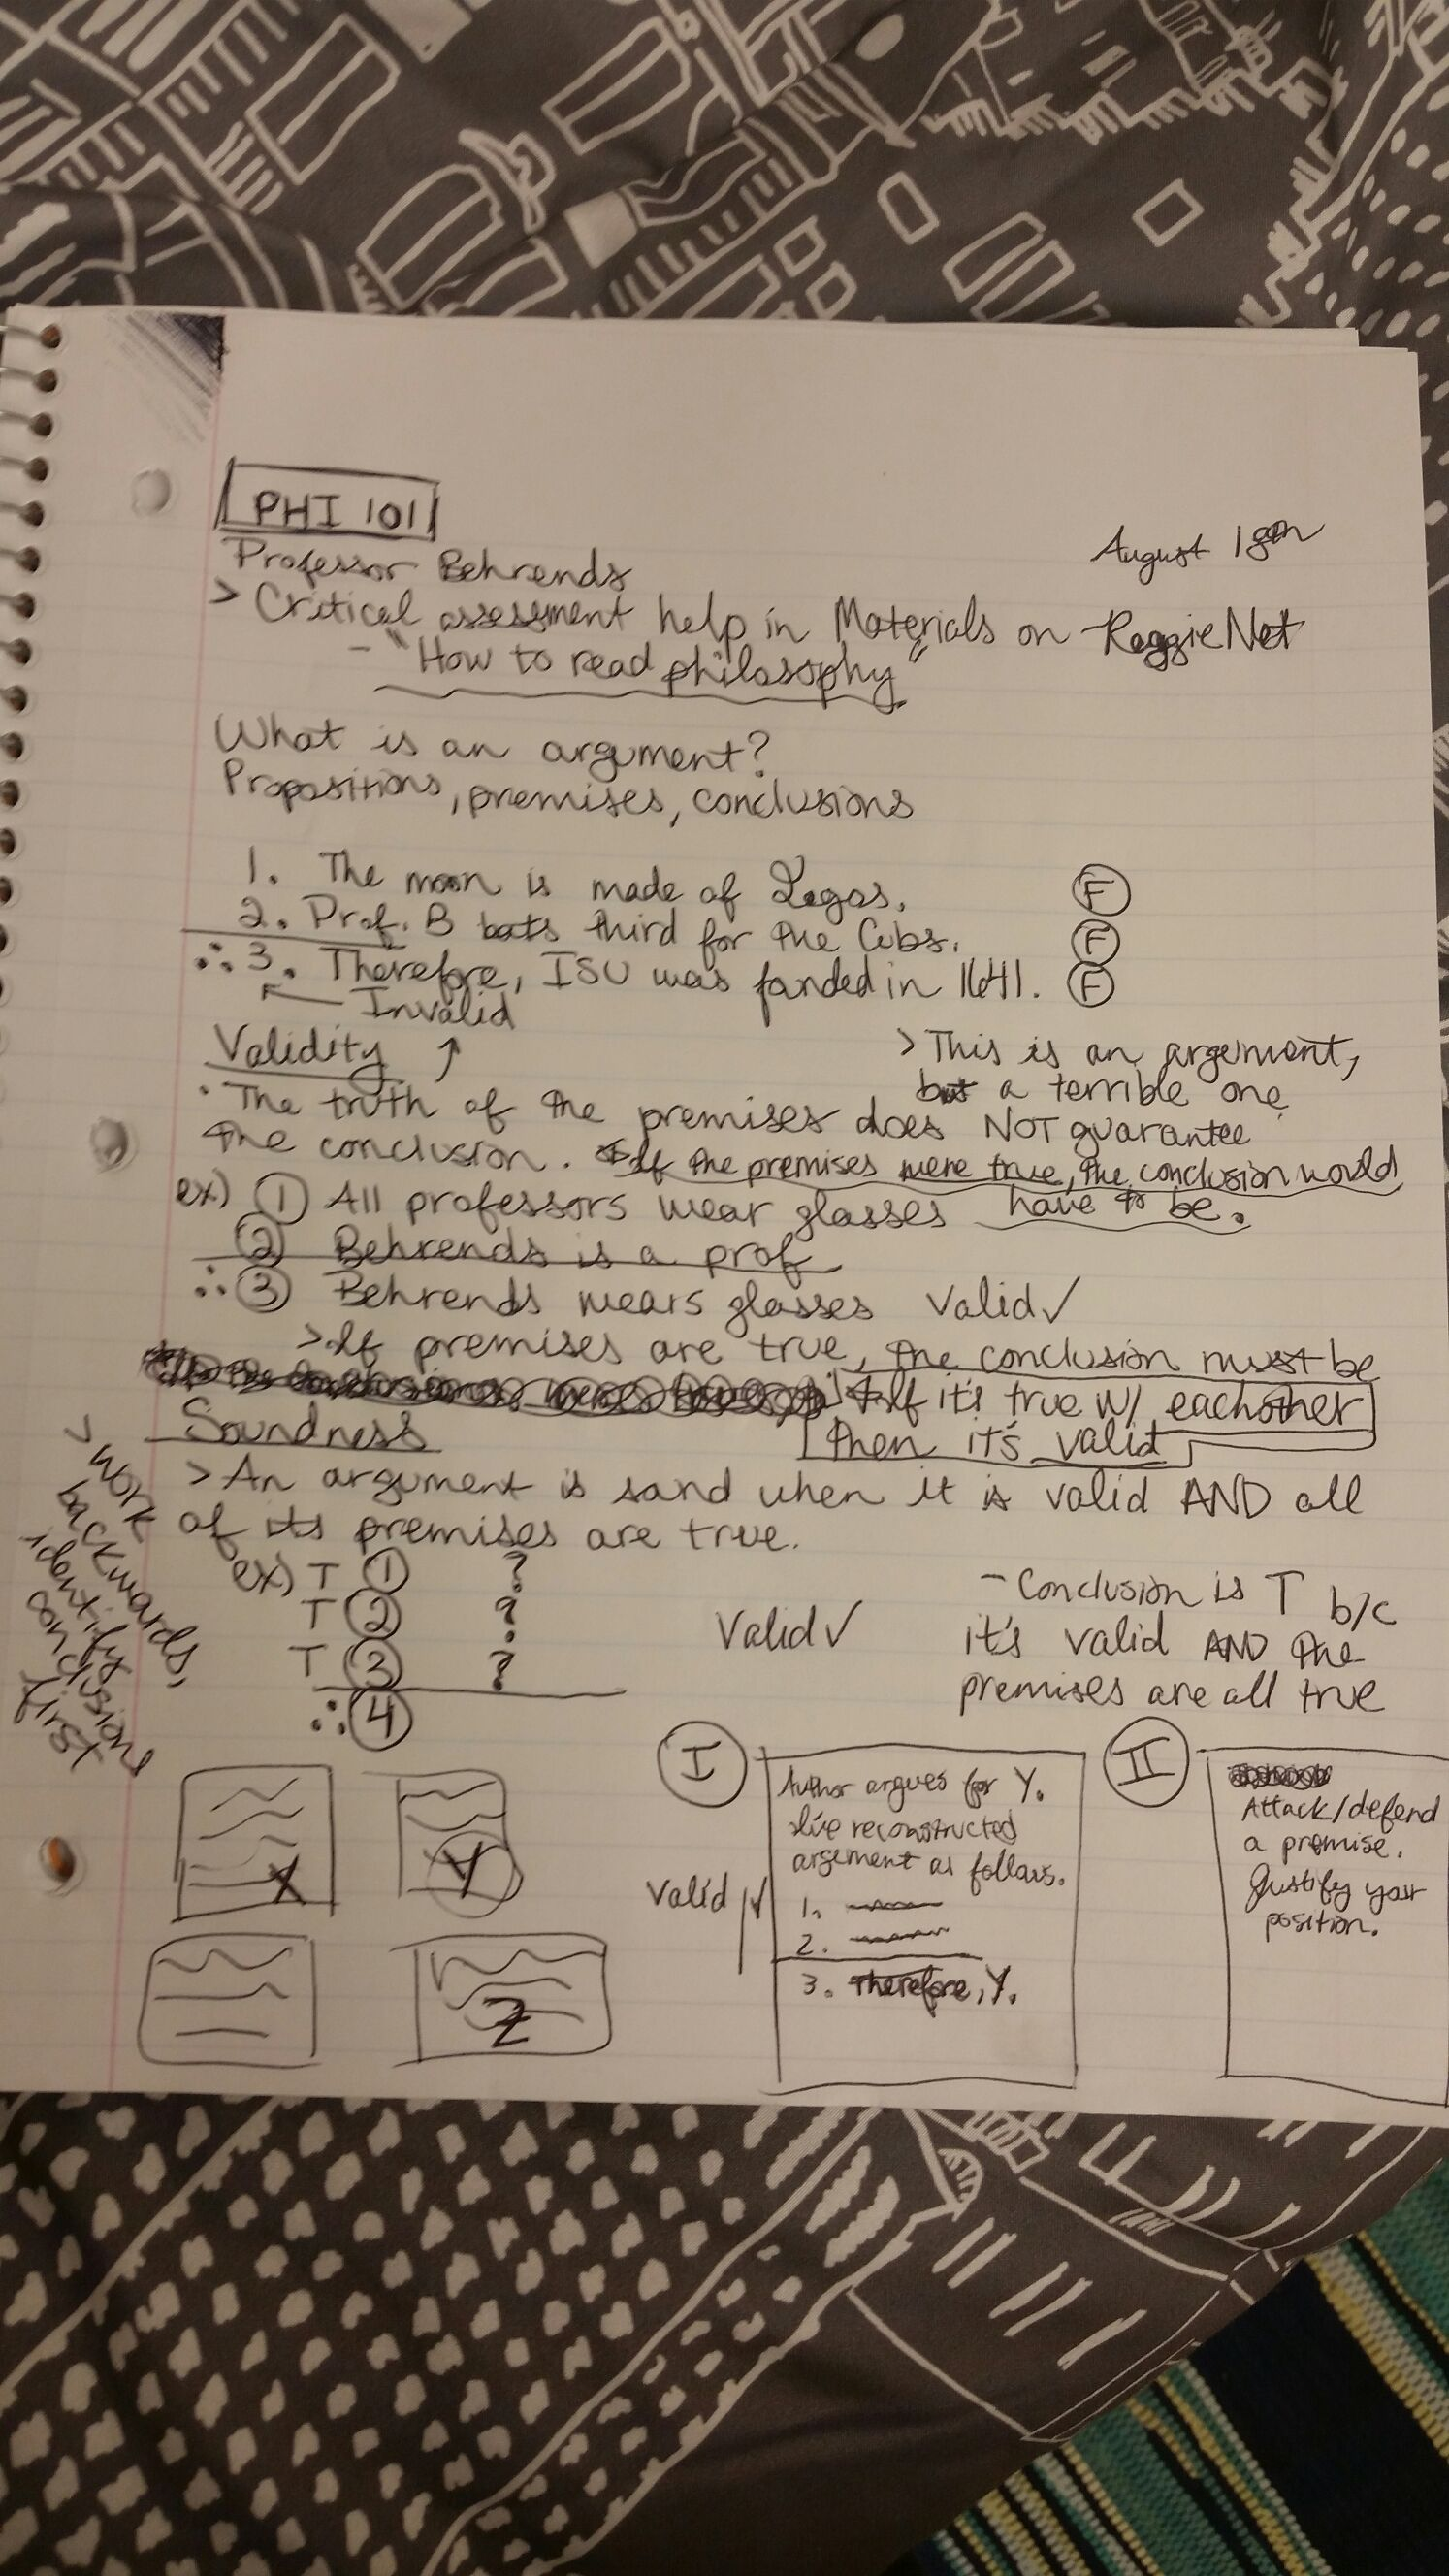 PHI 101
August 18th
Professor Behrends
> Critical assessment help in Materials on ReggieNet
- "How to read philosophy"
What is an argument?
Propositions, premises, conclusions
1. The moon is made of Legos. F
2. Prof. B bats third for the Cubs. F
∴ 3. Therefore, ISU was fonded in 1641. F
Invalid
Validity
> This is an argement,
but a terrible one
• The truth of the premises does NOT guarantee
the conclusion. *If the premises were true, the conclusion would
have to be.
ex) ① All professors wear glasses
② Behrends is a prof
∴ ③ Behrends wears glasses Valid ✓
> If premises are true, the conclusion must be
*If it's true w/ eachother
then it's valid
Soundness
> An argument is sound when it is valid AND all
of its premises are true.
> Work
backwards,
identify
conclusion
first
ex) T ① ?
T ② ?
T ③ ?
∴ ④
Valid ✓
- Conclusion is T b/c
it's valid AND the
premises are all true
X
Y
Z
I
Author argues for Y.
reconstructed
argement as follows.
Valid ✓
1.
2.
3. Therefore, Y.
II
Attack/defend
a premise.
Justify your
position.